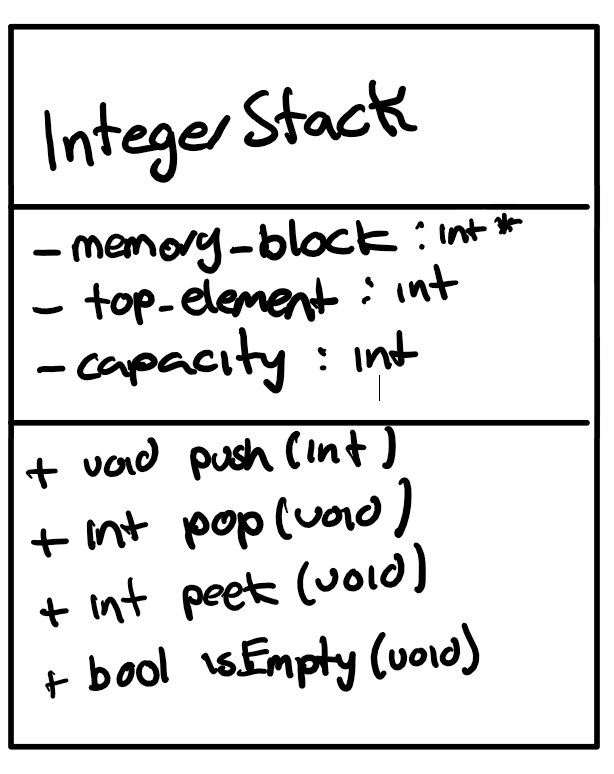 IntegerStack
- memory_block : int *
- top_element : int
- capacity : int
+ void push (int)
+ int pop (void)
+ int peek (void)
+ bool isEmpty (void)